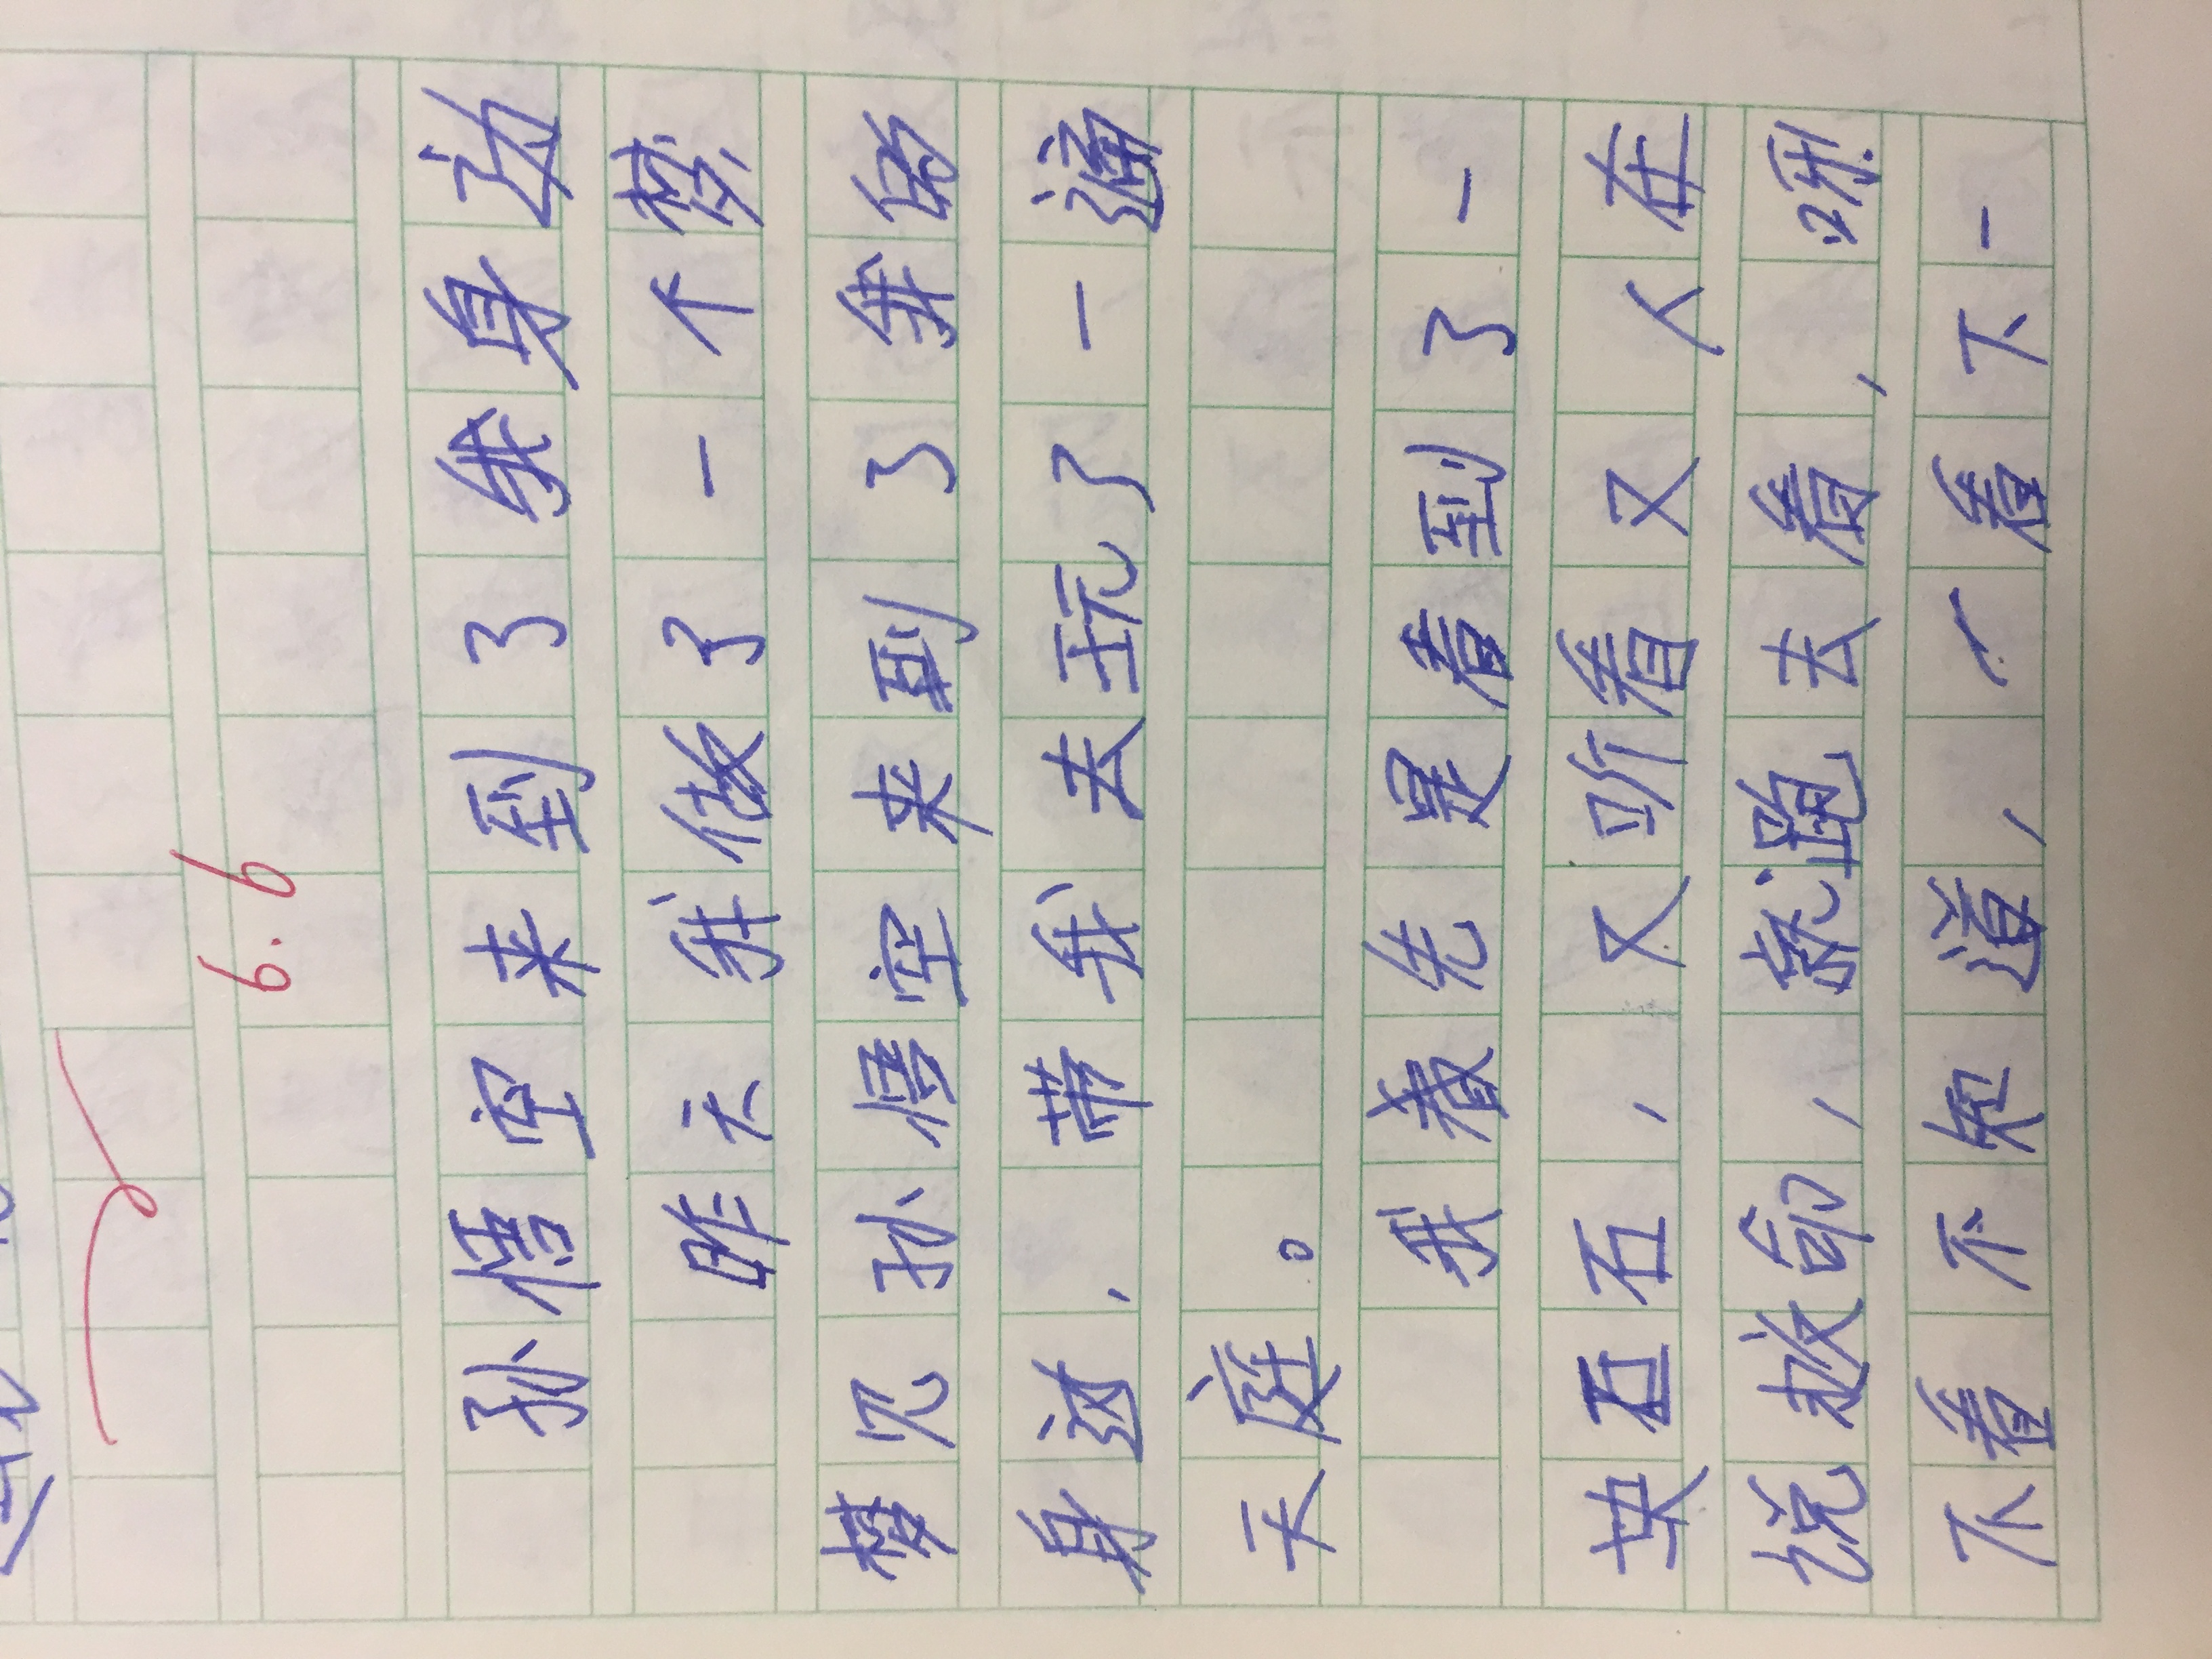 6.6
孙悟空来到了我身边
昨天我做了一个梦
梦见孙悟空来到了我的
身边，带我去玩了一通
天庭。
我着先是看到了一
块石石，又听看又人在
说救命，就跑去看，呀
不看不知道，一看下一